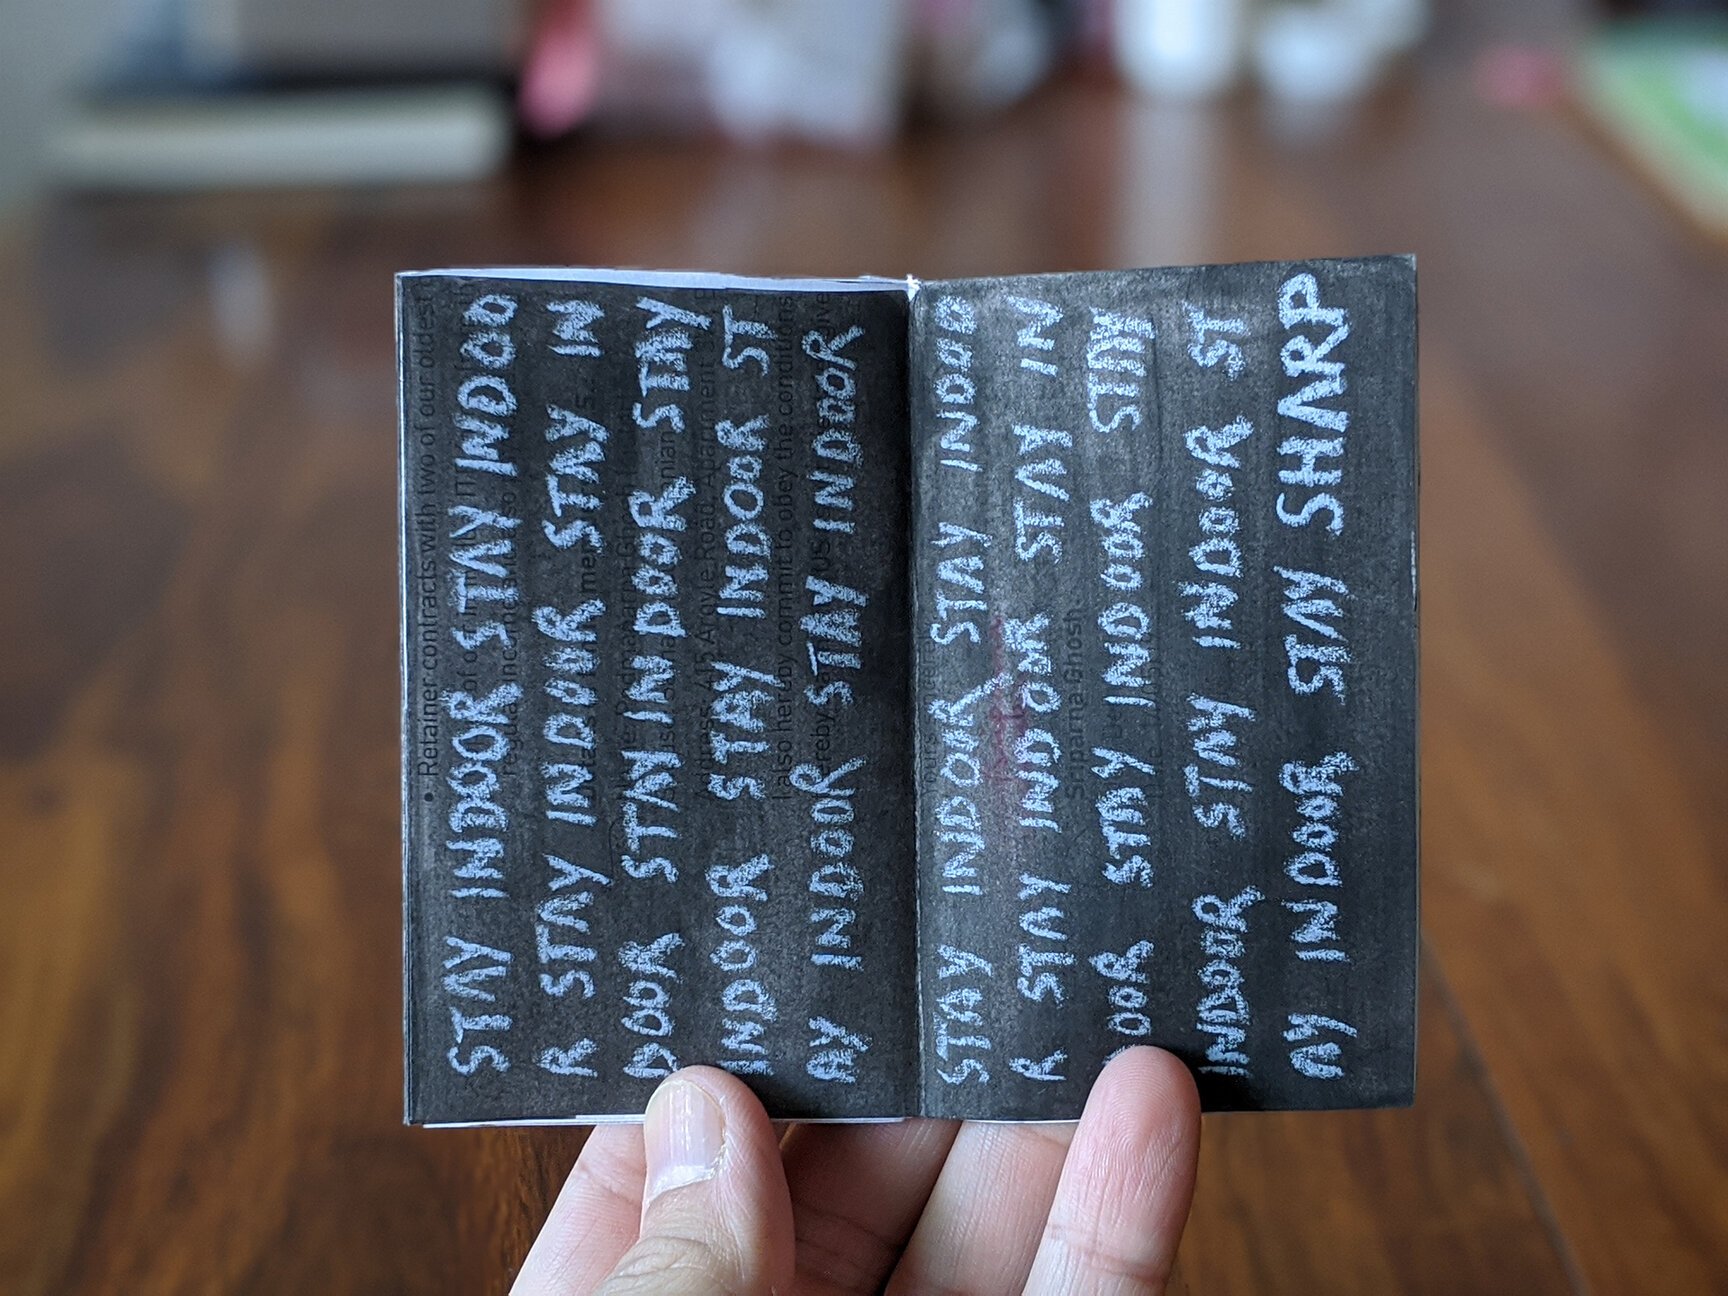 STAY INDOOR STAY INDOO
R STAY INDOOR STAY IN
DOOR STAY INDOOR STAY
INDOOR STAY INDOOR ST
AY INDOOR STAY INDOOR
• Retainer contracts with two of our oldest
I also hereby commit to obey the conditions
STAY INDOOR STAY INDOO
R STAY INDOOR STAY IN
OOR STAY INDOOR STAY
INDOOR STAY INDOOR ST
AY INDOOR STAY SHARP
Suparna Ghosh